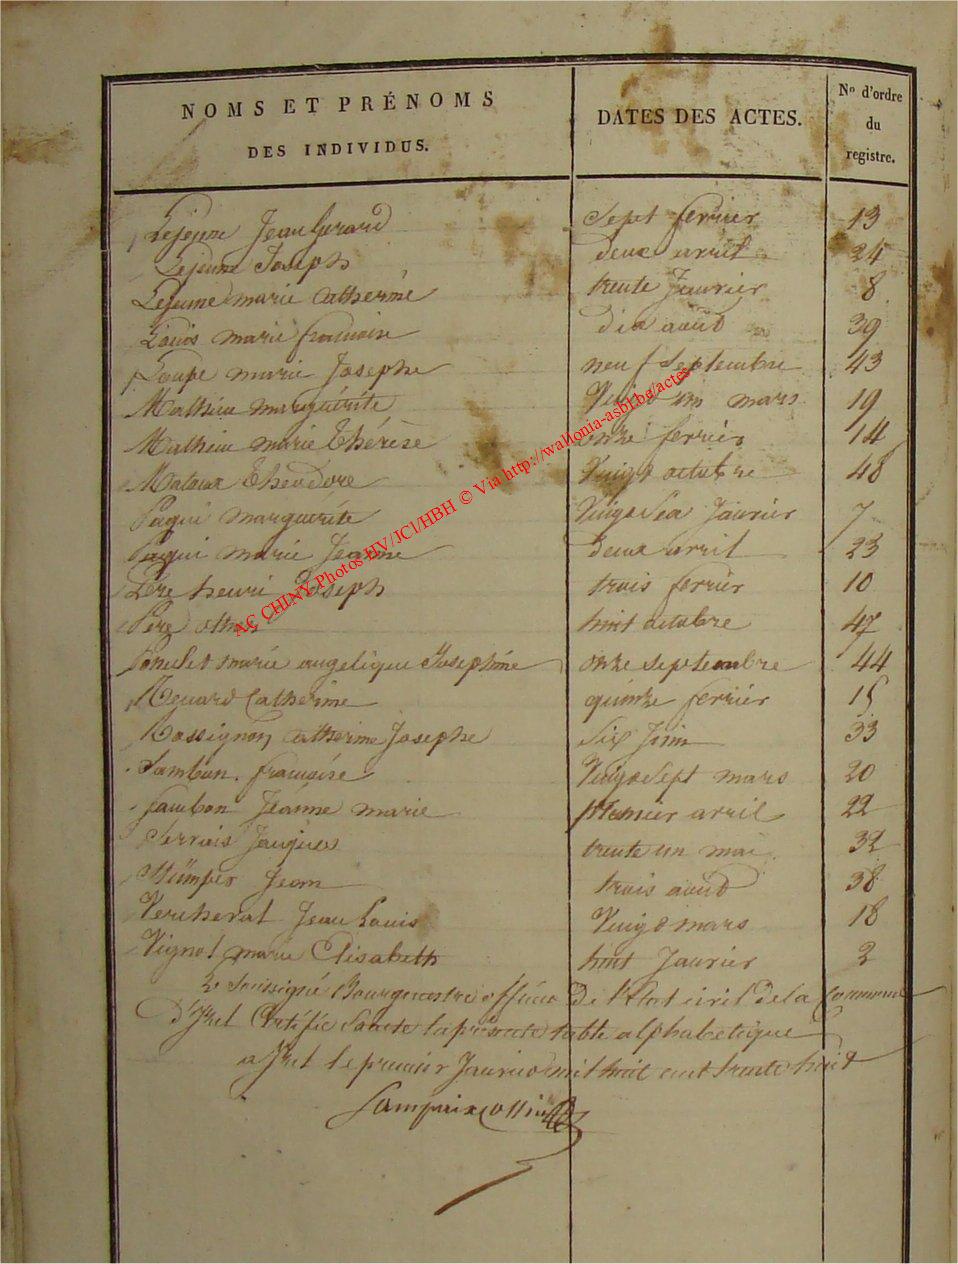 NOMS ET PRÉNOMS
DES INDIVIDUS.
DATES DES ACTES.
No d'ordre
du
registre.
Lejeune Jean Gerard sept fevrier 13
Lejeune Joseph deux avril 24
Lejeune marie Catherine trente Janvier 8
Louis marie francoise dix août 39
Loupe marie Josephe neuf Septembre 43
Mathieu marguérite Vingt un mars 19
Mathieu marie Thérèse onze fevrier 14
Mataux Theodore Vingt octobre 48
Paqui marguerite Vingt six Janvier 7
Paqui marie Jeanne deux avril 23
Père henri Joseph trois fevrier 10
Père huit octobre 47
Poncelet marie angelique Josephine onze septembre 44
Renard Catherine quinze fevrier 15
Rossignon Catherine Josephe six Juin 33
Sambon francoise Vingt sept mars 20
Sambon Jeanne marie premier avril 22
Servais Jacques trente un mai 32
Stümper Jean trois août 38
Vercheval Jean Louis Vingt mars 18
Vignol marie Elisabeth huit Janvier 2
Le Soussigné Bourgmestre officier De l'Etat civil de la Commune
D'Izel Certifie Sincere la présente table alphabetique
a Izel le premier Janvier mil huit cent trente huit
AC CHINY Photos HV/JCl/HBH © Via http://wallonia-asbl.be/actes